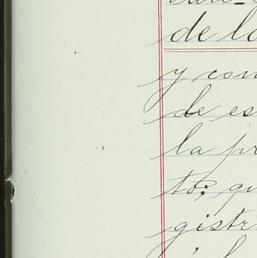 de la
y con
de es
la pr
to; qu
gistr